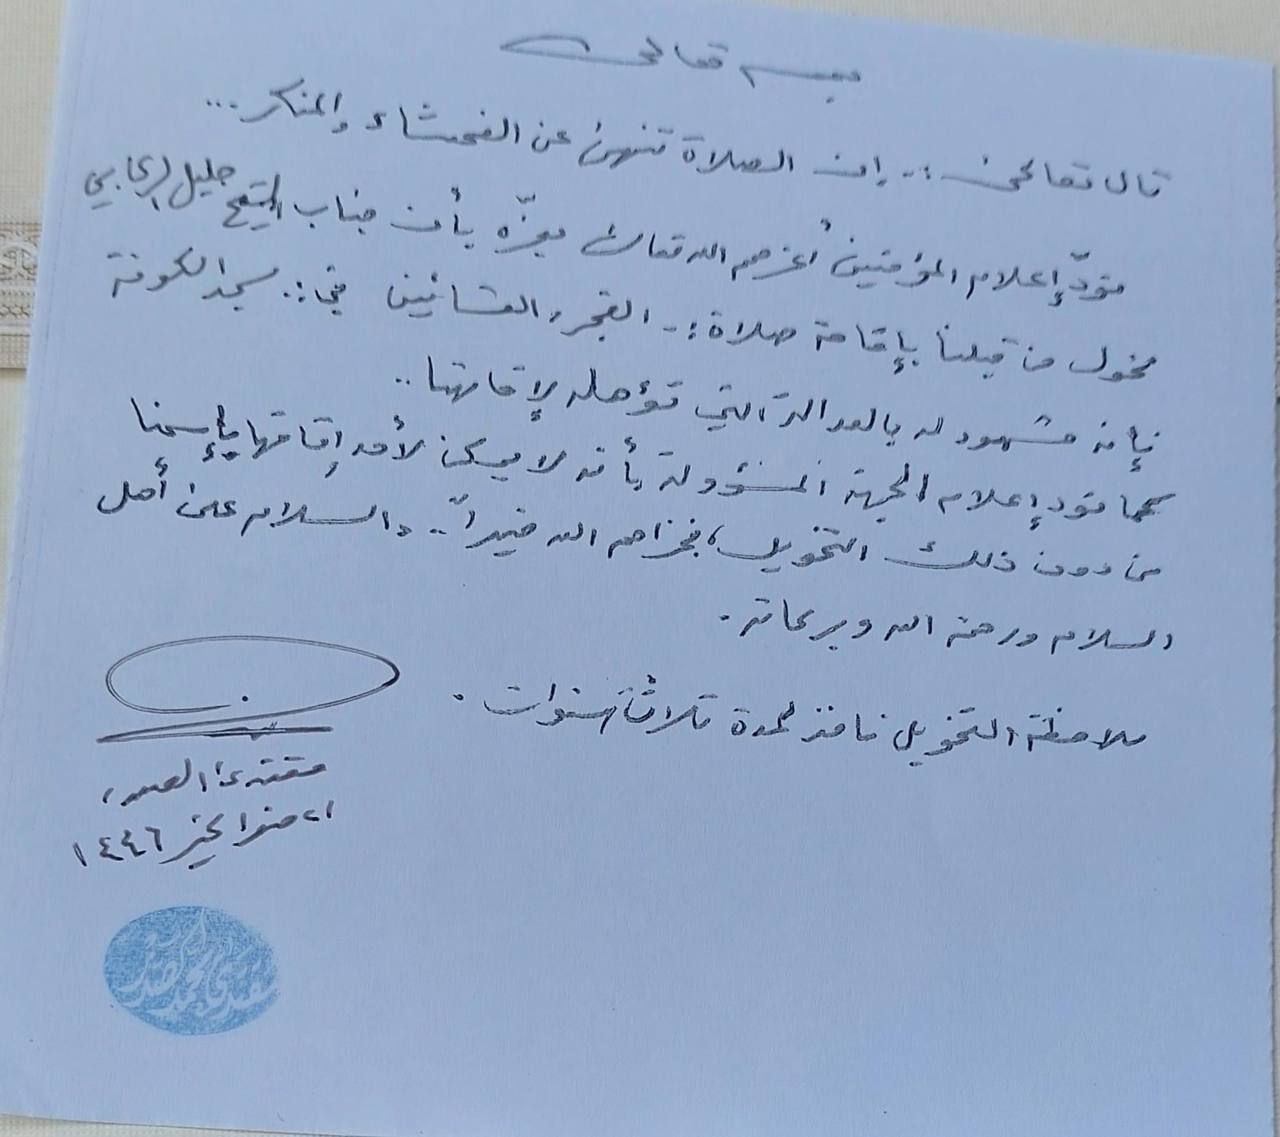 بسمه تعالى
قال تعالى :. إن الصلاة تنهى عن الفحشاء والمنكر...
نودّ إعلام المؤمنين أعزهم الله تعالى بعزّه بأن جناب الشيخ جليل
مخول من قبلنا بإقامة صلاة :. الفجر والعشائين في :. مسجد الكوفة
فإنه مشهود له بالعدالة التي تؤهله لإقامتها..
كما نود إعلام الجهة المسؤولة بأنه لا يمكن لأحد إقامتها بإسمنا
من دون ذلك التخويل، فجزاهم الله خيراً.. والسلام على أهل
السلام ورحمة الله وبركاته.
ملاحظة التخويل نافذ لمدة ثلاث سنوات.
مقتدى الصدر
صفر الخير ١٤٤٦